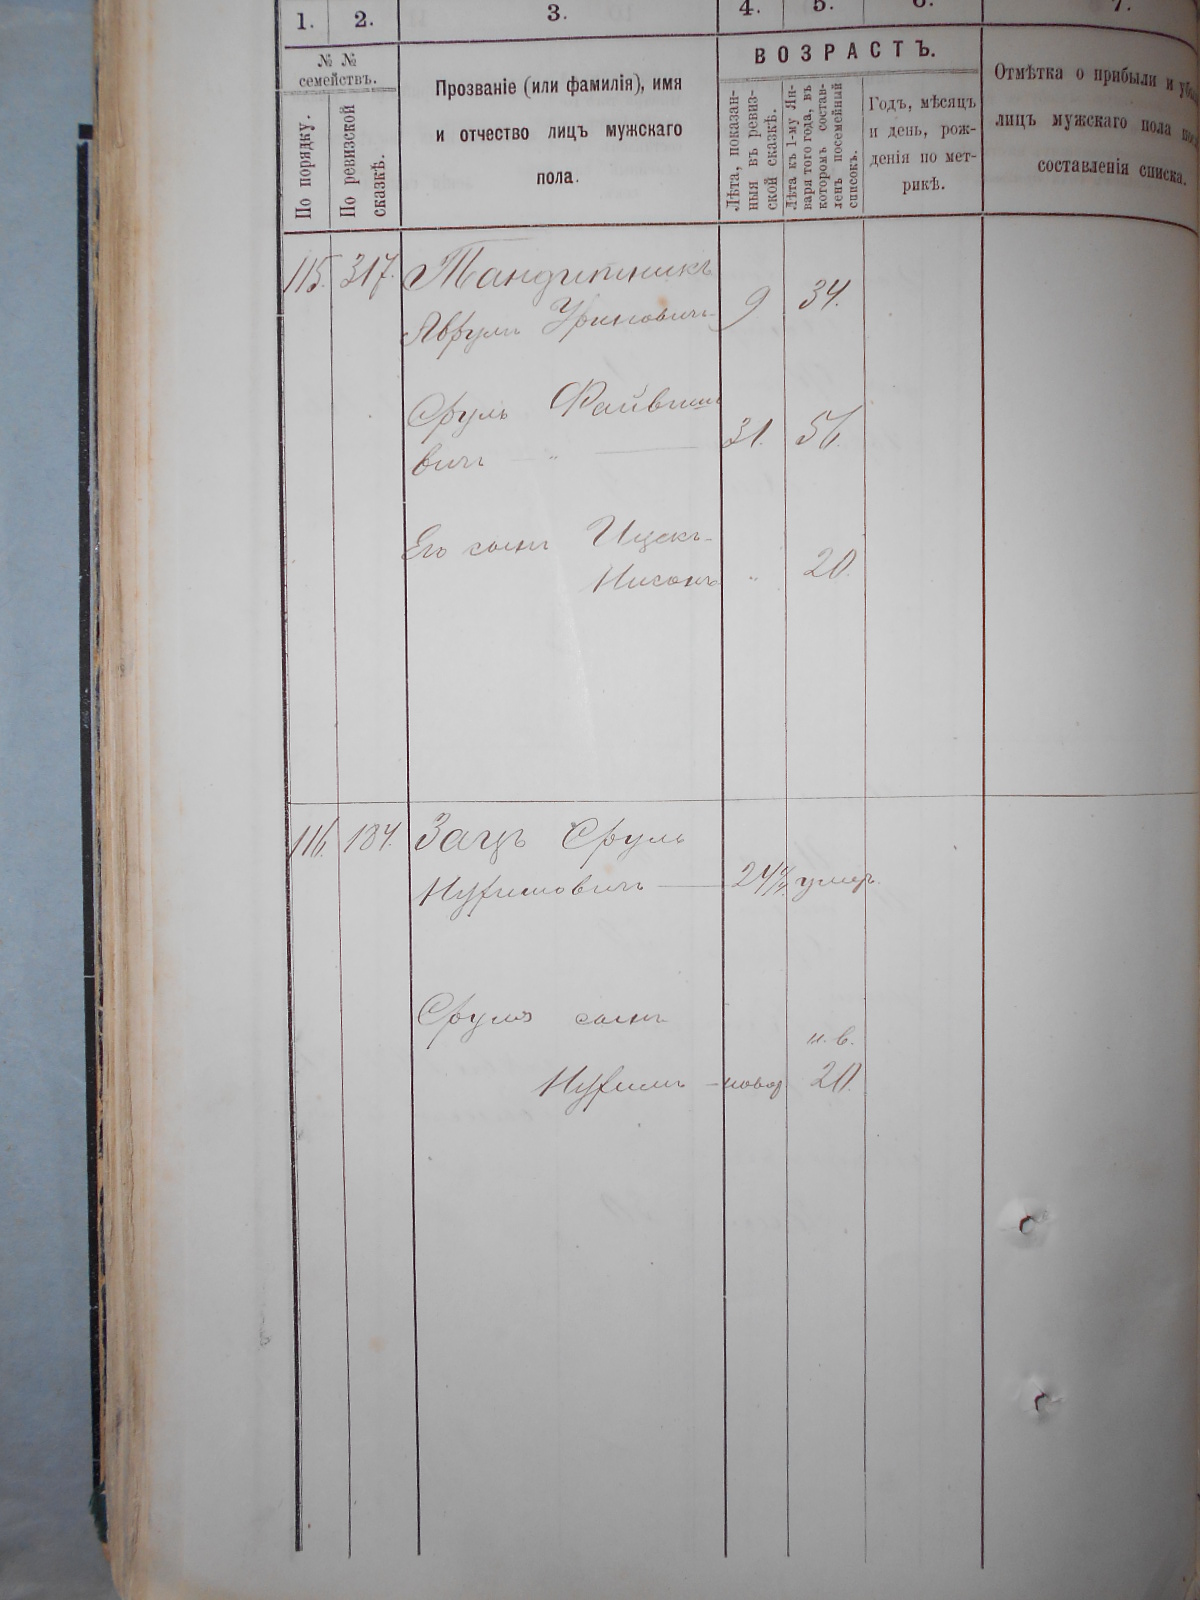 1. 2. 3. 4. 5. 6. 7.
№ №
семействъ.
По порядку.
По ревизской
сказкѣ.
Прозваніе (или фамилія), имя
и отчество лицъ мужскаго
пола.
ВОЗРАСТЪ.
Лѣта, показан-
ныя въ ревиз-
ской сказкѣ.
Лѣта къ 1-му Ян-
варя того года, въ
которомъ состав-
ленъ посемейный
списокъ.
Годъ, мѣсяцъ
и день, рож-
денія по мет-
рикѣ.
Отмѣтка о прибыли и
лицъ мужскаго пола
составленія списка.
115. 317. Тандитникъ
Аврумъ 9 34.
Сруль Файвиши
вичъ — " — 31. 56.
Его сынъ Ицекъ-
Нисонъ " 20.
116. 184. Зацъ Сруль
Нухимовичъ — 24 умеръ.
Сруля сынъ
н. в.
Нухимъ — новор 20.